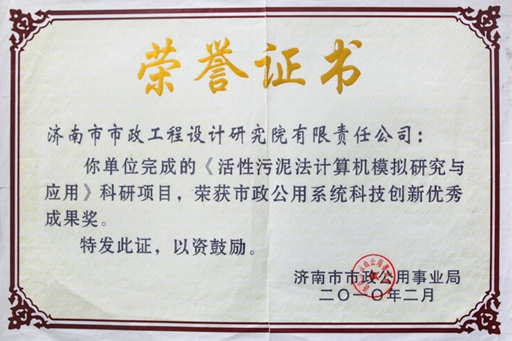 荣誉证书
济南市市政工程设计研究院有限责任公司：
你单位完成的《活性污泥法计算机模拟研究与
应用》科研项目，荣获市政公用系统科技创新优秀
成果奖。
特发此证，以资鼓励。
济南市市政公用事业局
二〇一〇年二月